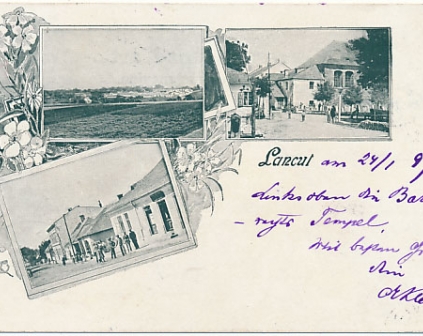 Lancut am 24/1 9
Links oben die Ba
rechts Tempel,
Mit besten G
Dein